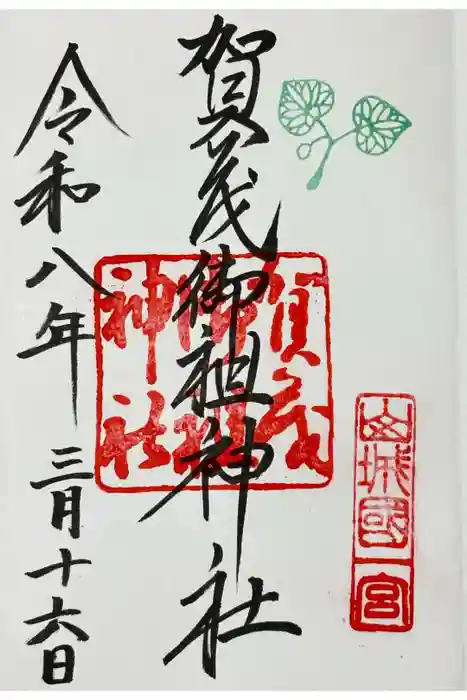 山城國一宮
賀茂御祖神社
賀茂
御祖
神社
令和八年 三月十六日